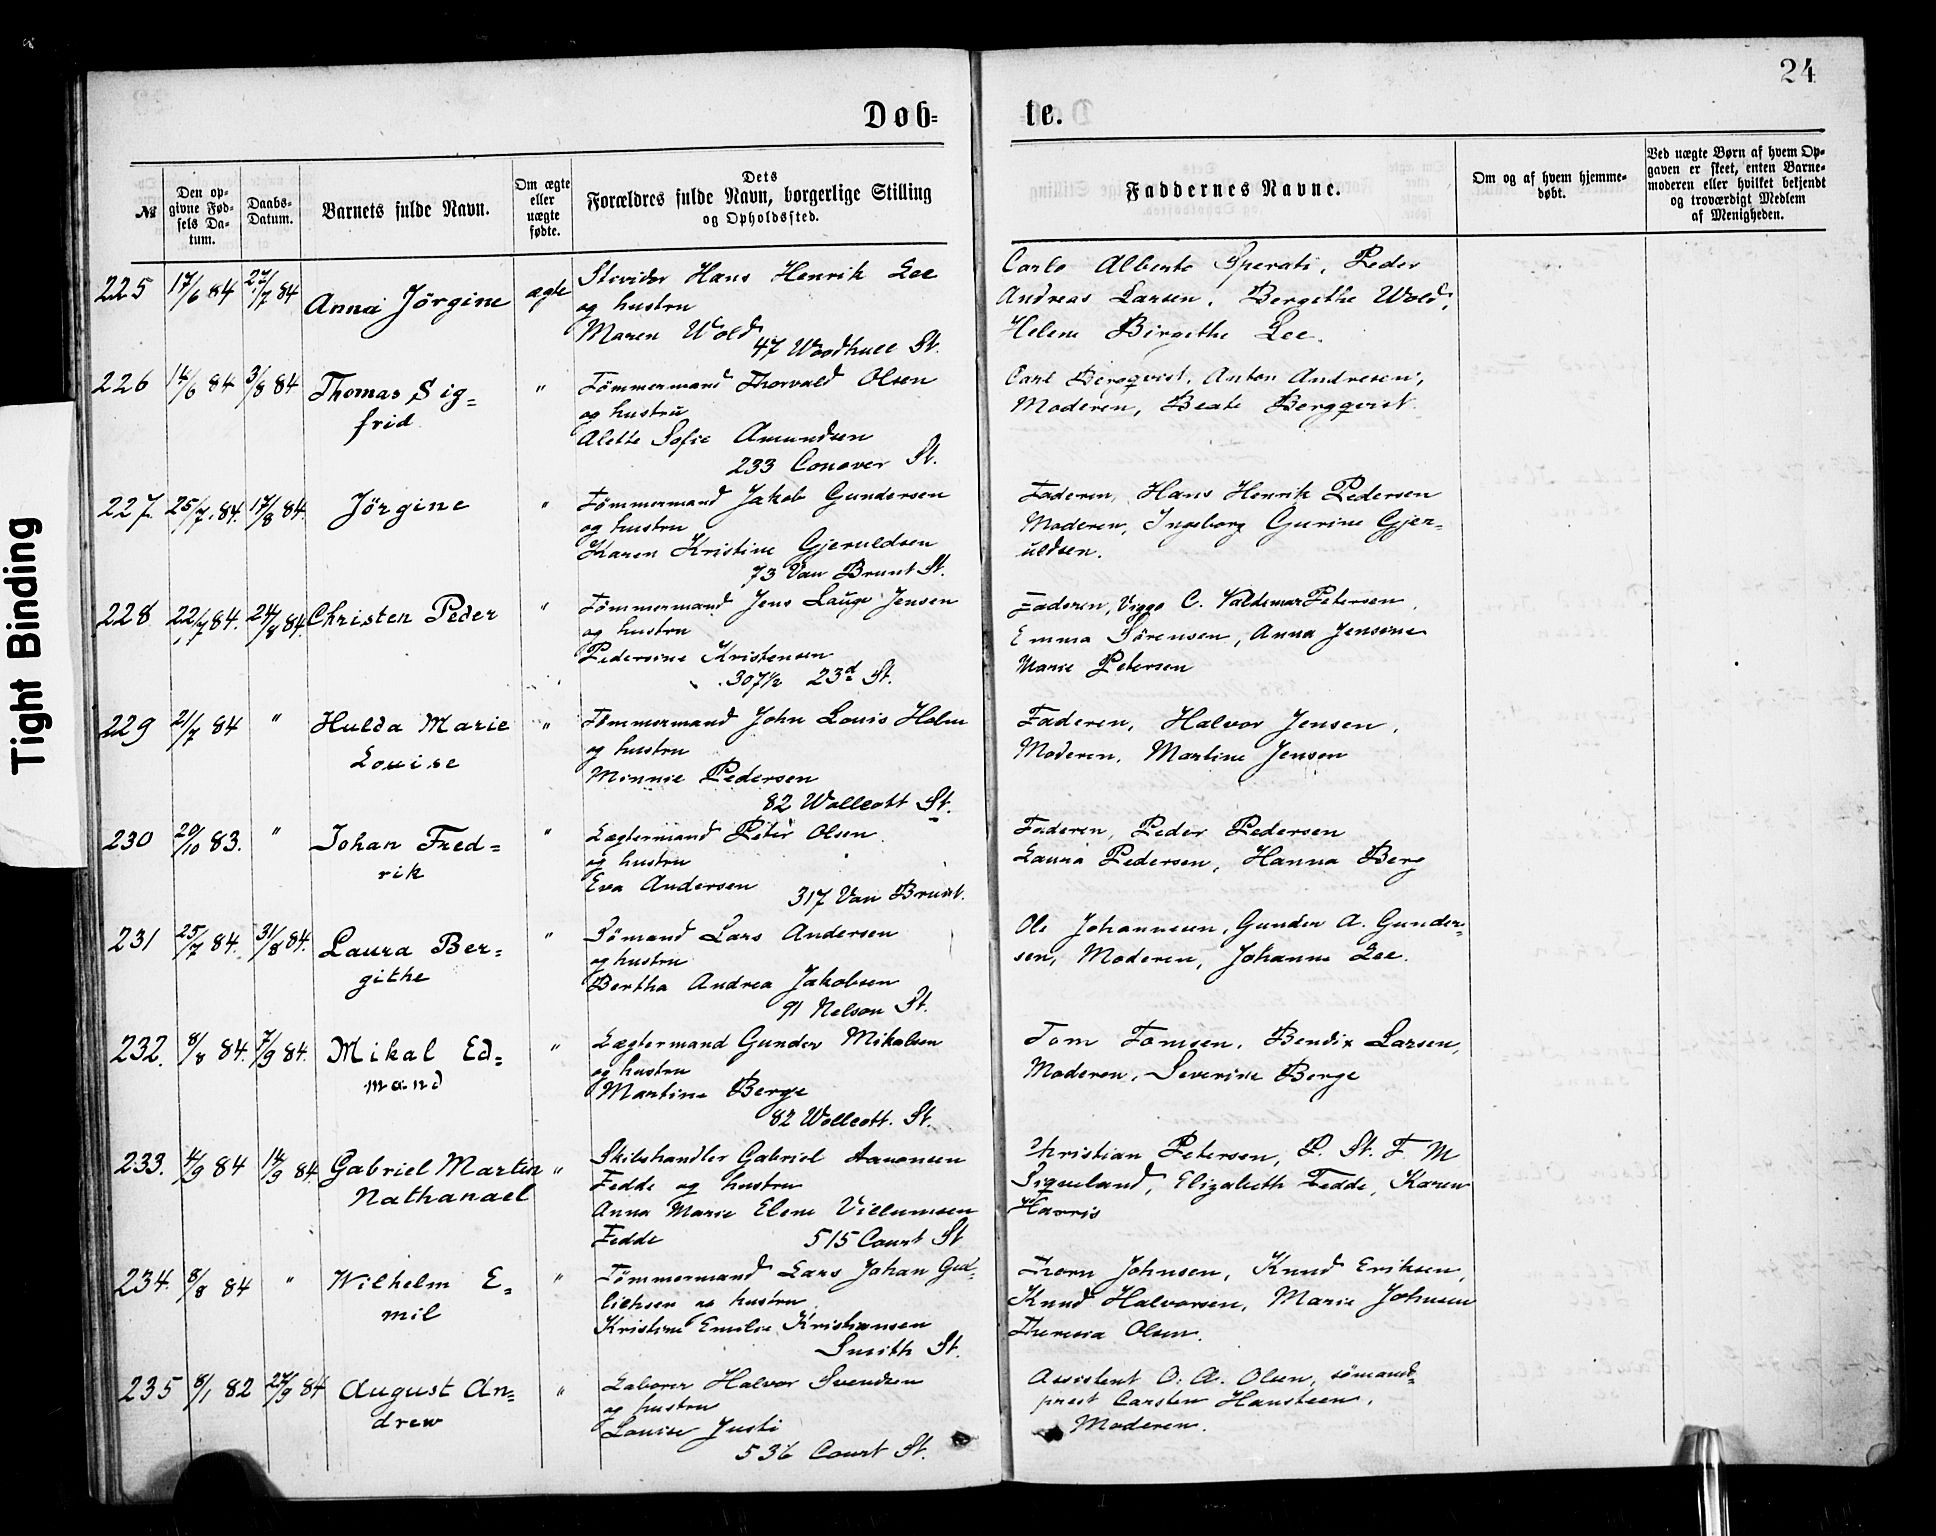 24
Døb=
te.
№
Den op-
givne Fød-
sels Da-
tum.
Daabs-
Datum.
Barnets fulde Navn.
Om ægte
eller
uægte
fødte.
Dets
Forældres fulde Navn, borgerlige Stilling
og Opholdssted.
Faddernes Navne.
Om og af hvem hjemme-
døbt.
Ved uægte Børn af hvem Op-
gaven er skeet, enten Barne-
moderen eller hvilket bekjendt
og troværdigt Medlem
af Menigheden.
Tight Binding
225 17/6 84 27/7 84 Anna Jörgine ægte
Stevidor Hans Henrik Lee
og hustru
Maren Wold
47 Woodhull St.
Carlo Alberto Sperati, Peder
Andreas Larsen, Bergithe Wold,
Helene Birgithe Lee.
226 14/6 84 3/8 84 Thomas Sig=
frid "
Tömmermand Thorvald Olsen
og hustru
Alette Sofie Amundsen
233 Conover St.
Carl Bergqvist, Anton Andresen,
Moderen, Beate Bergqvist.
227. 25/7. 84. 17/8 84. Jörgine "
Tömmermand Jakob Gundersen
og hustru
Karen Kristine Gjeruldsen
73 Van Brunt St.
Faderen, Hans Henrik Pedersen
Moderen, Ingeborg Gurine Gjer=
uldsen.
228 22/7 84. 24/8 84. Christen Peder "
Tömmermand Jens Lauge Jensen
og hustru
Pedersine Kristensen
307½ 23d St.
Faderen, Viggo C. Valdemar Petersen,
Emma Sörensen, Anna Jensine
Marie Petersen
229 21/7 84 " Hulda Marie
Louise "
Tömmermand John Louis Holm
og hustru
Minnie Pedersen
82 Wollcott St.
Faderen, Halvor Jensen,
Moderen, Martine Jensen
230 20/10 83. " Johan Fred=
rik "
Lægtermand Peter Olsen
og hustru
Eva Andersen
317 Van Brunt.
Faderen, Peder Pedersen
Laura Pedersen, Hanna Berg
231 25/7 84. 31/8 84. Laura Ber=
githe "
Sömand Lars Andersen
og hustru
Bertha Andrea Jakobsen
91 Nelson St.
Ole Johannesen, Gunder A. Gunder=
sen, Moderen, Johanne Lee.
232. 8/8 84. 7/9 84. Mikal Ed=
mand "
Lægtermand Gunder Mikalsen
og hustru
Martine Berge
82 Wollcott. St.
Tom Tomsen, Bendix Larsen,
Moderen, Severine Berge
233. 4/9 84 14/9 84. Gabriel Martin
Nathanael "
Skibshandler Gabriel Aanonsen
Fedde og hustru
Anna Marie Elene Villumsen
Fedde 515 Court St
Christian Petersen, P. St. F. M
Sigveland, Elizabeth Fedde, Karen
Harris
234. 8/8 84 " Wilhelm E=
mil "
Tömmermand Lars Johan
og hustru
Kristine Emilie Kristiansen
Smith St.
Thorn Johnsen, Knud Eriksen,
Knud Halvorsen, Marie Johnsen
Theresia Olsen.
235 8/1 82 27/9 84 August An=
drew "
Laborer Halvor Svendsen
og hustru
Louise Justi
536 Court St.
Assistent O. A. Olsen, sömand=
prest Carsten Hansteen,
Moderen.